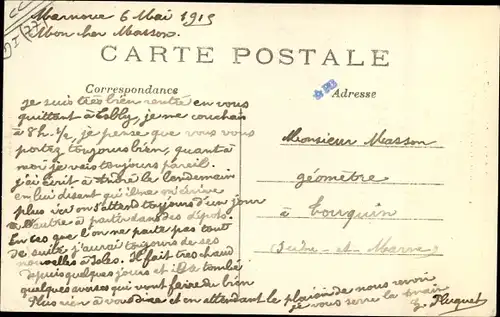 Marnoue 6 Mai 1915
Mon cher Masson.
CARTE POSTALE
Correspondance
Adresse
je suis très bien rentré en vous
quittant à je me couchais
à 8h. 1/2, je pense que vous vous
portez toujours bien, quant à
moi je vais toujours pareil.
j'ai écrit à André le lendemain
en lui disant qu'il ne m'écrive
plus ici on s'attend toujours d'un jour
à l'autre à partir dans des dépots.
En cas que l'on ne parte pas tout
de suite j'aurai toujours de ses
nouvelles à Isles. Il fait très chaud
depuis quelques jours et il a tombé
quelques averses qui vont faire du bien
Plus rien à vous dire et en attendant le plaisir de nous revoir
je vous serre la main
Huguet
Monsieur Masson
géomètre
à Touquin
(Seine-et-Marne)